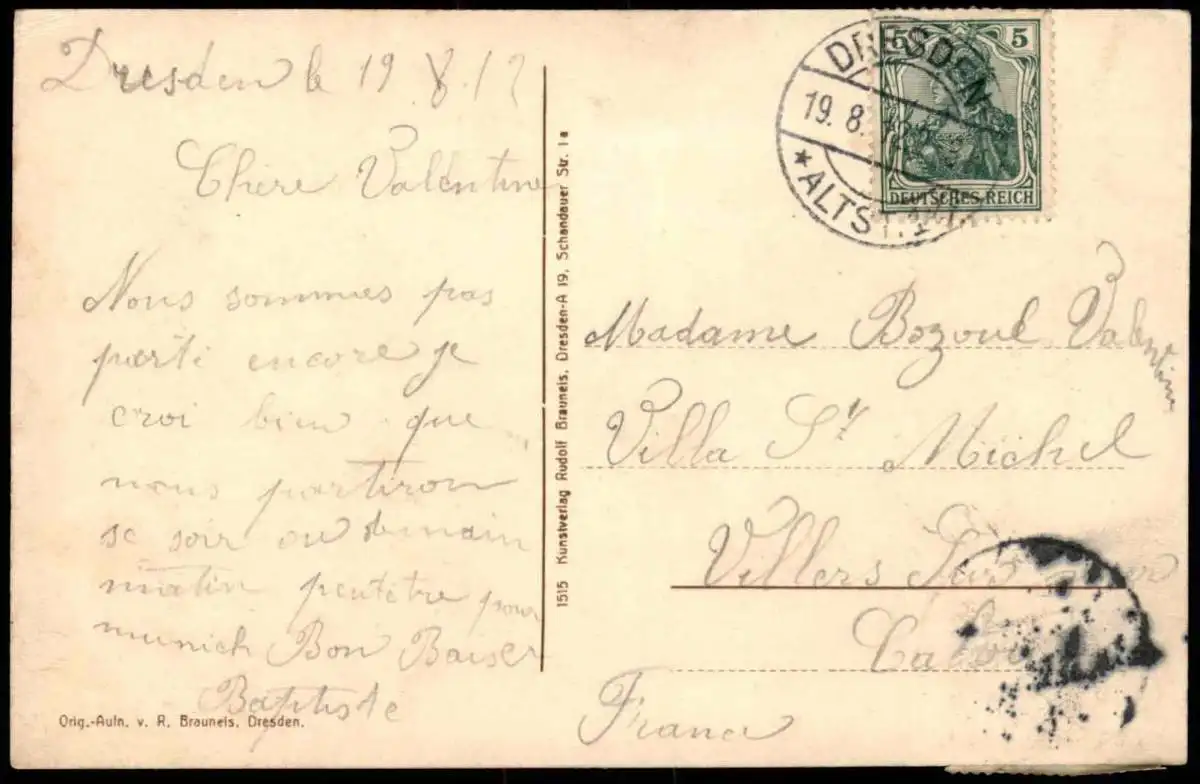 Dresden le 19 8 12
Chere Valentine
Nous sommes pas
parti encore je
croi bien que
nous partiron
se soir ou demain
matin peutetre pour
munich Bon Baiser
Baptiste
Orig.-Aufn. v. R. Brauneis, Dresden.
1515 Kunstverlag Rudolf Brauneis, Dresden-A 19, Schandauer Str. 1a
DRESDEN
19. 8. 12
*ALTST. 1
5 5
DEUTSCHES REICH
Madame Bozoul Valentine
Villa St Michel
Villers Sur
France